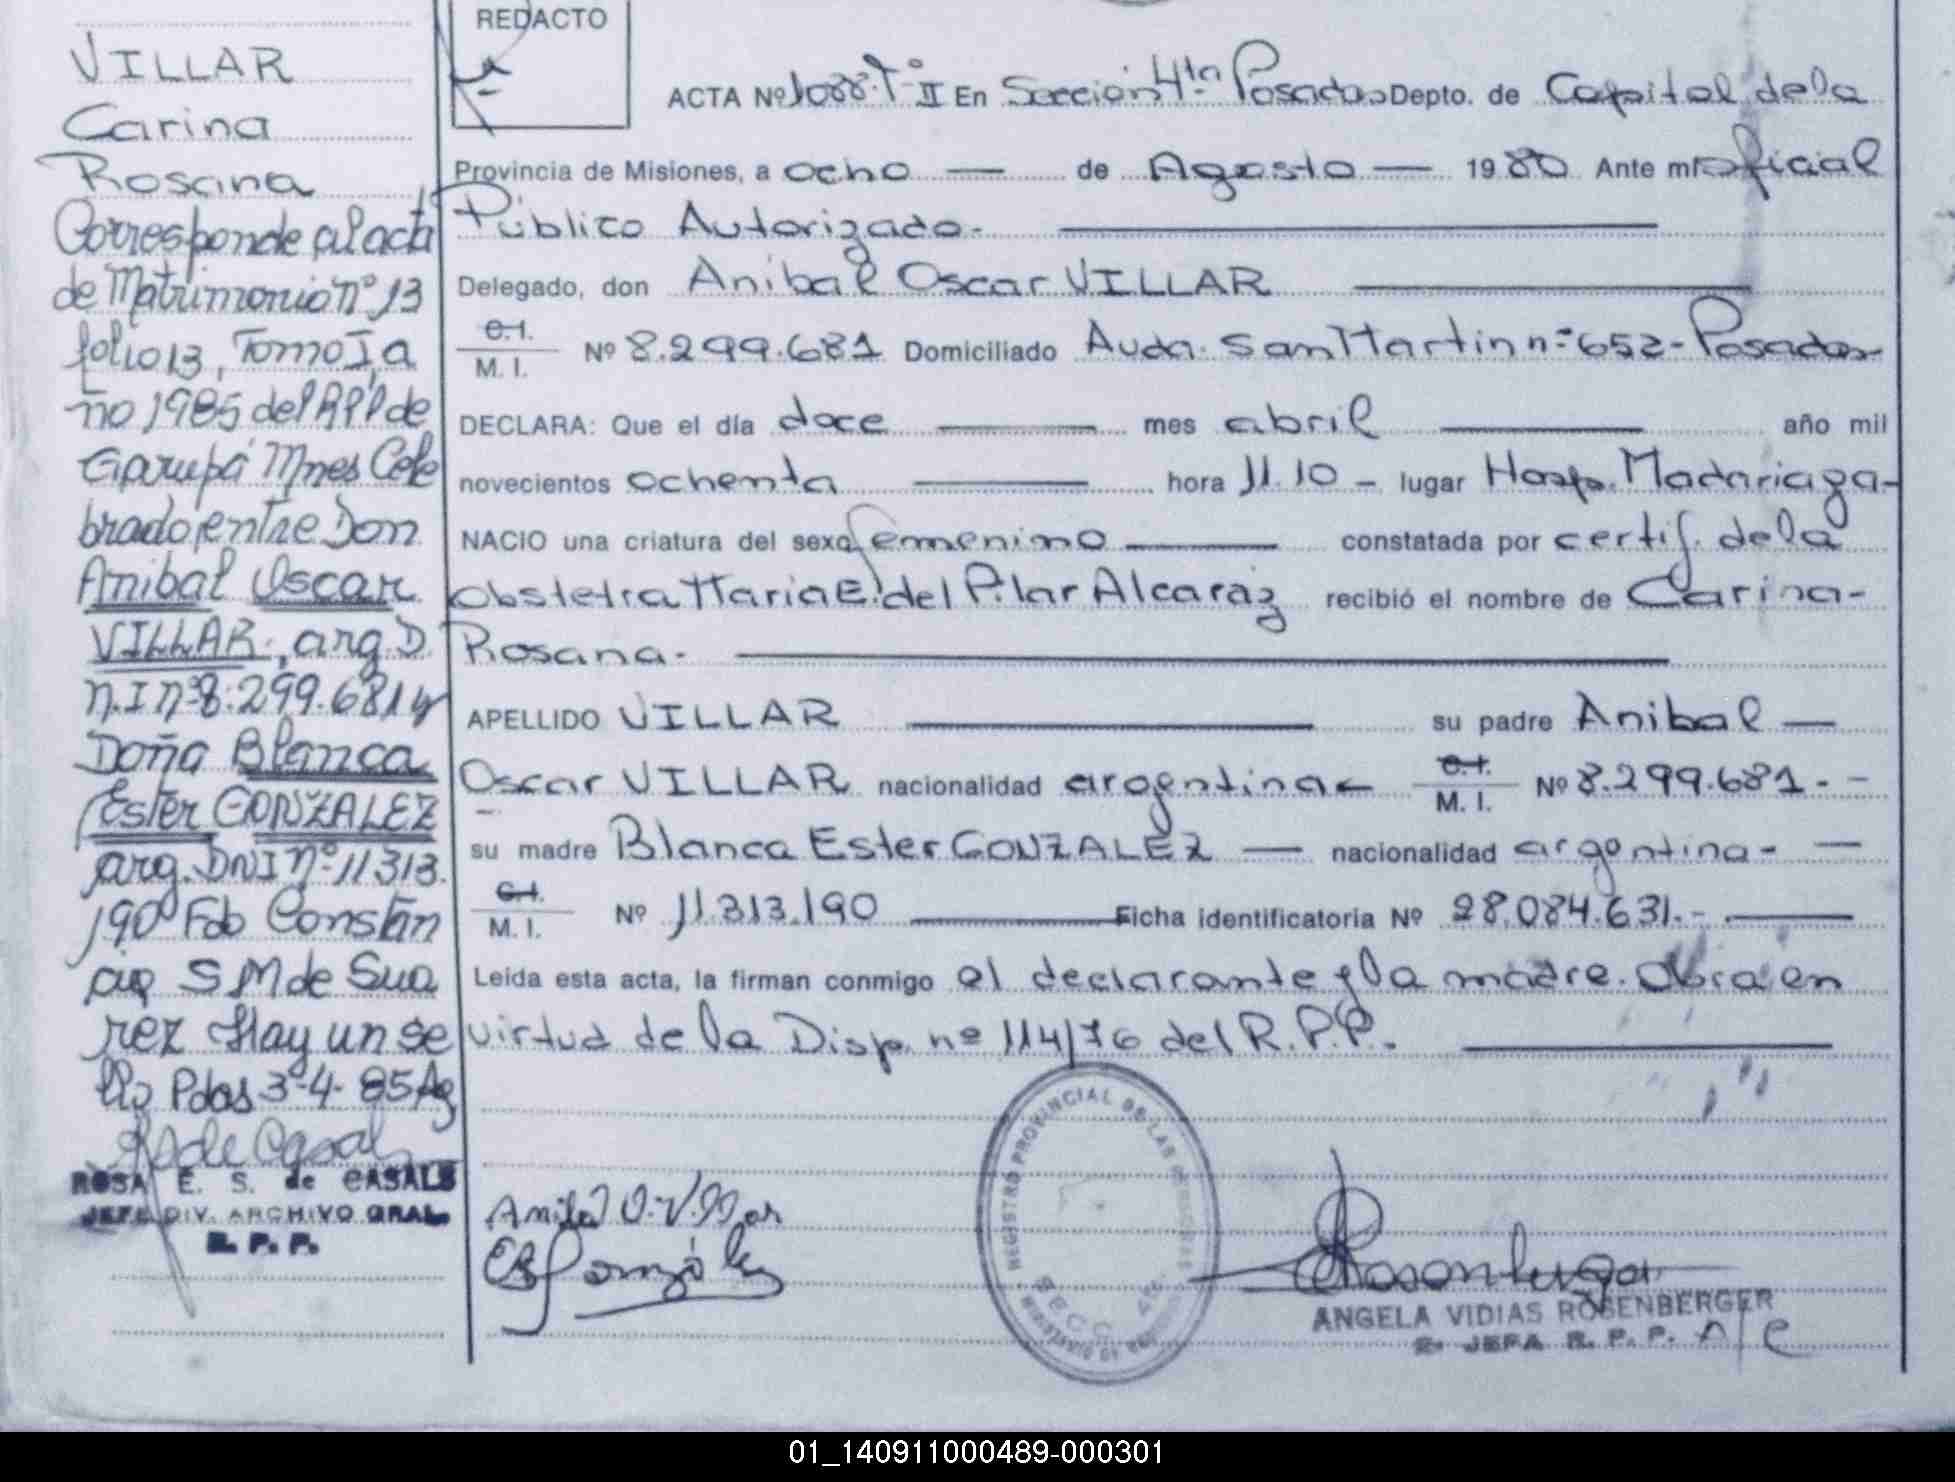 VILLAR
Carina
Rosana
Corresponde al acta
de Matrimonio nº 13
folio 13, Tomo I, a
ño 1985 del RPP de
Garupá Mnes Cele
brado entre Don
Anibal Oscar
VILLAR, arg. D.
N.I nº 8.299.681 y
Doña Blanca
Ester GONZALEZ
arg. DNI Nº 11313.
190 Fdo Constan
cia S M de Sua
rez Hay un se
llo Pdas 3-4-85
ROSA E. S. de CASALS
JEFE DIV. ARCHIVO GRAL.
R. P. P.
REDACTO
ACTA Nº 1088 Tº II En Sección 4ta Posadas Depto. de Capital de la
Provincia de Misiones, a ocho — de Agosto — 1980 Ante mi oficial
Público Autorizado.
Delegado, don Anibal Oscar VILLAR
C.I.
M. I. Nº 8.299.681 Domiciliado Avda. San Martin nº 652 - Posadas
DECLARA: Que el día doce mes abril año mil
novecientos ochenta hora 11.10 - lugar Hosp. Madariaga-
NACIO una criatura del sexo femenino constatada por certif. de la
obstetra Maria E. del Pilar Alcaraz recibió el nombre de Carina-
Rosana.
APELLIDO VILLAR su padre Anibal —
Oscar VILLAR nacionalidad argentina C.I.
M. I. Nº 8.299.681.-
su madre Blanca Ester GONZALEZ — nacionalidad argentina- —
C.I.
M. I. Nº 11.313.190 Ficha identificatoria Nº 28.084.631.-
Leida esta acta, la firman conmigo el declarante y la madre. Obra en
virtud de la Disp. nº 114/76 del R.P.P.
REGISTRO PROVINCIAL DE LAS PERSONAS
SECC. 4ta
Anibal O. Villar
ANGELA VIDIAS ROSENBERGER
JEFA R. P. P.
01_140911000489-000301